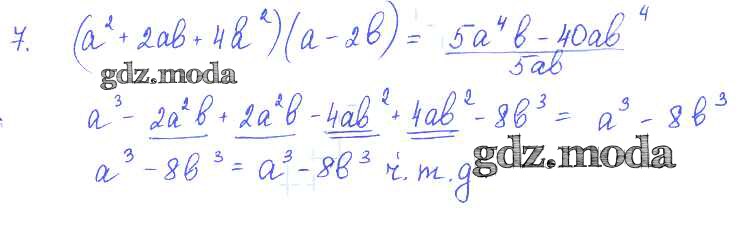 7. (a² + 2ab + 4b²)(a - 2b) = (5a⁴b - 40ab⁴)/(5ab)
gdz.moda
a³ - 2a²b + 2a²b - 4ab² + 4ab² - 8b³ = a³ - 8b³
a³ - 8b³ = a³ - 8b³ ч.т.д
gdz.moda